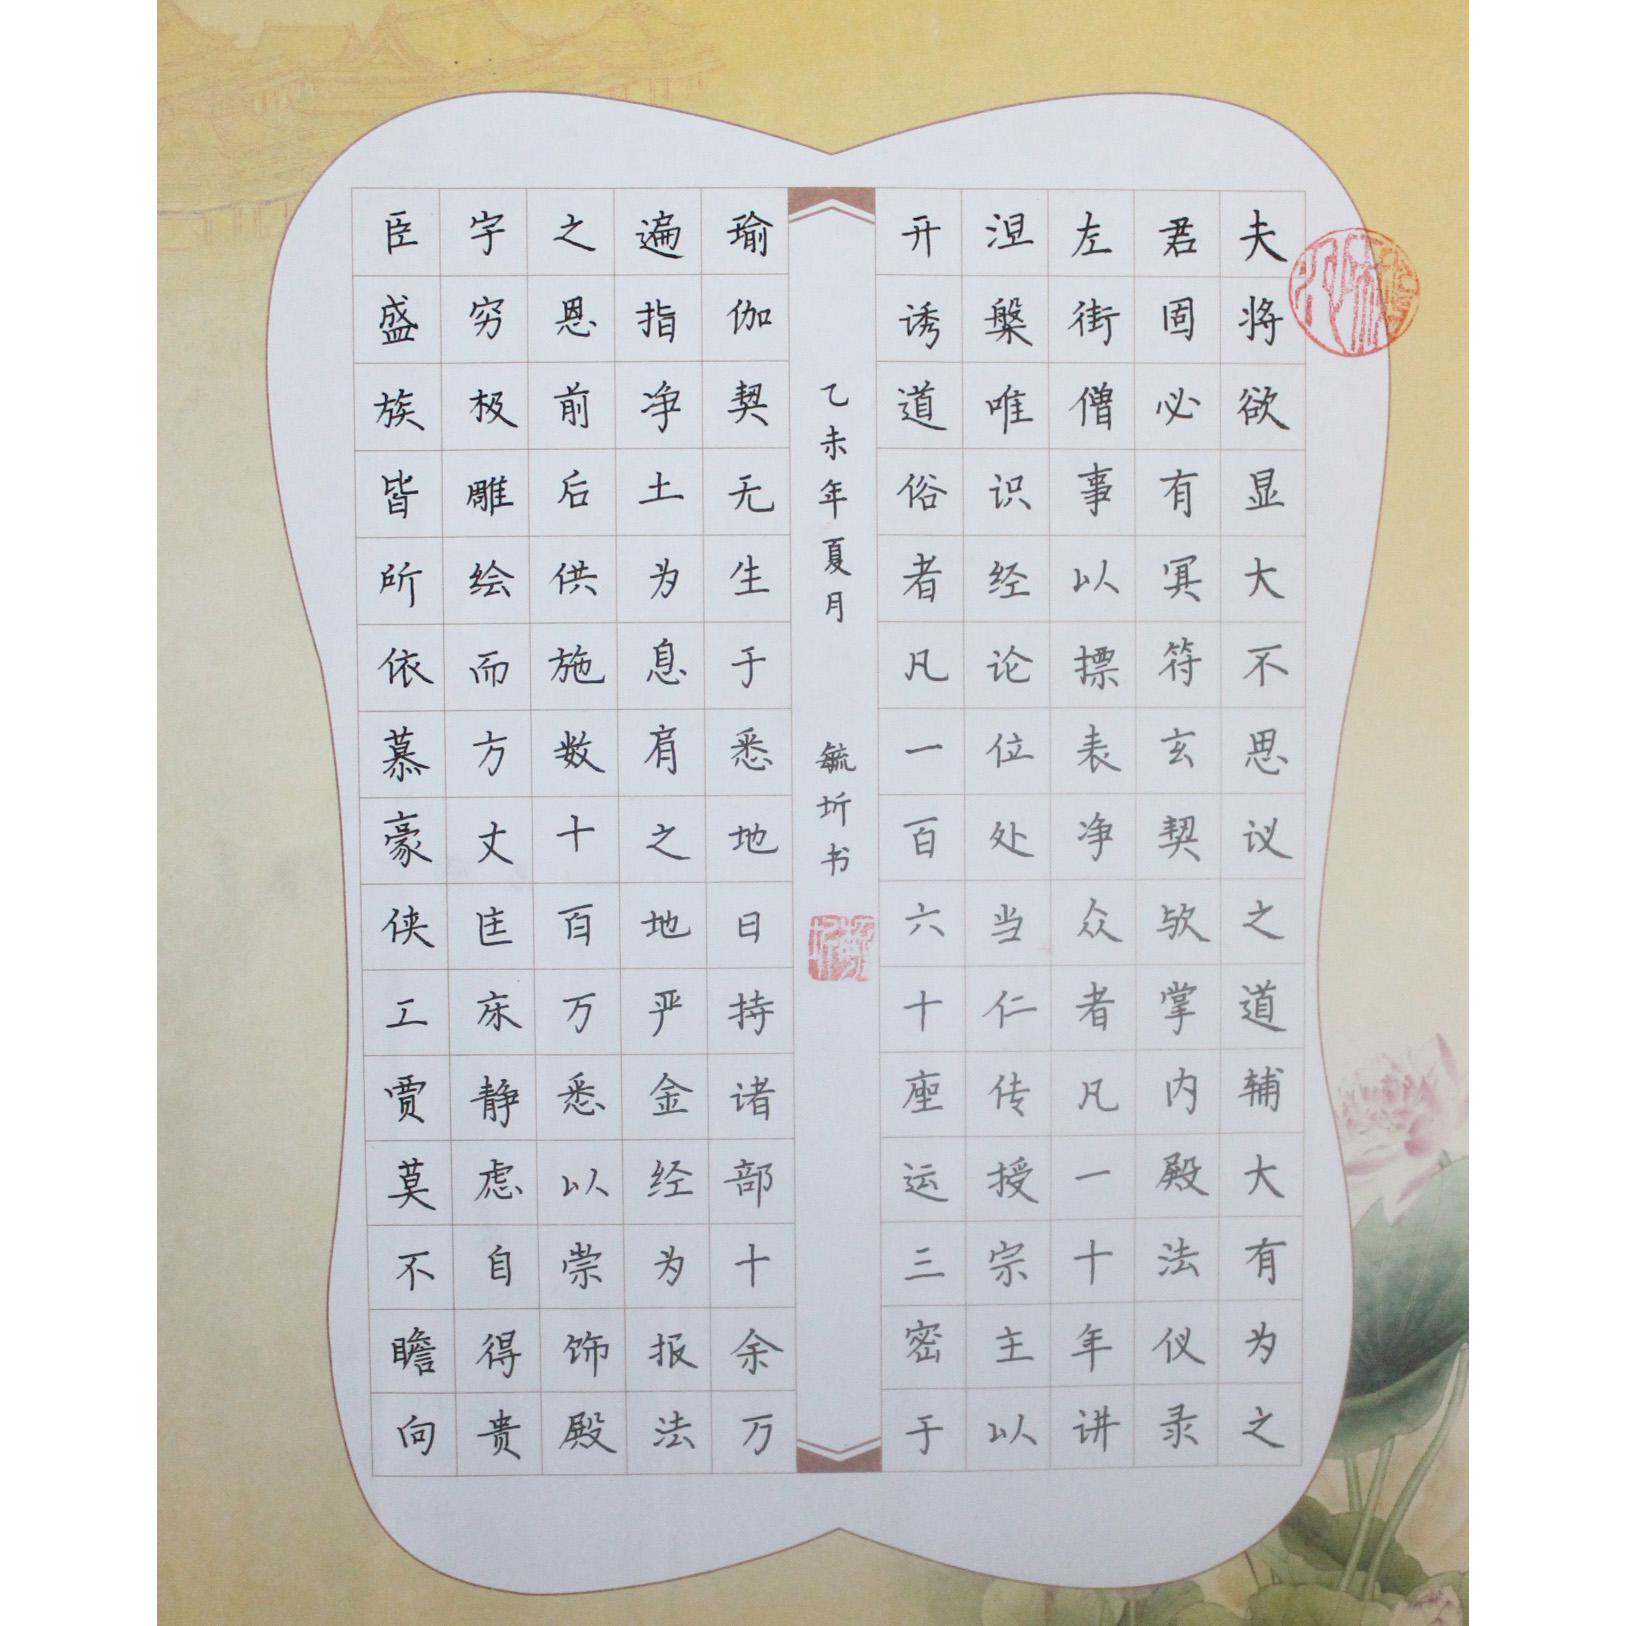 夫将欲显大不思议之道辅大有为之
君固必有冥符玄契欤掌内殿法仪录
左街僧事以摽表净众者凡一十年讲
涅槃唯识经论位处当仁传授宗主以
开诱道俗者凡一百六十座运三密于
瑜伽契无生于悉地日持诸部十余万
遍指净土为息肩之地严金经为报法
之恩前后供施数十百万悉以崇饰殿
宇穷极雕绘而方丈匡床静虑自得贵
臣盛族皆所依慕豪侠工贾莫不瞻向
乙未年夏月 毓圻书